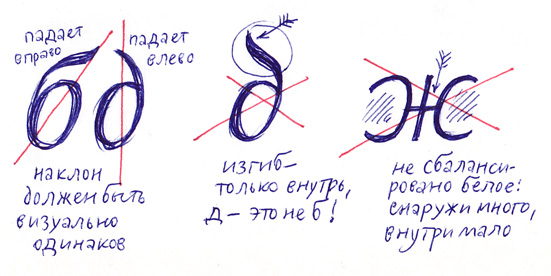 падает
вправо
падает
влево
б д
наклон
должен быть
визуально
одинаков
д
изгиб–
только внутрь,
д – это не б!
Ж
не сбаланси-
ровано белое:
снаружи много,
внутри мало